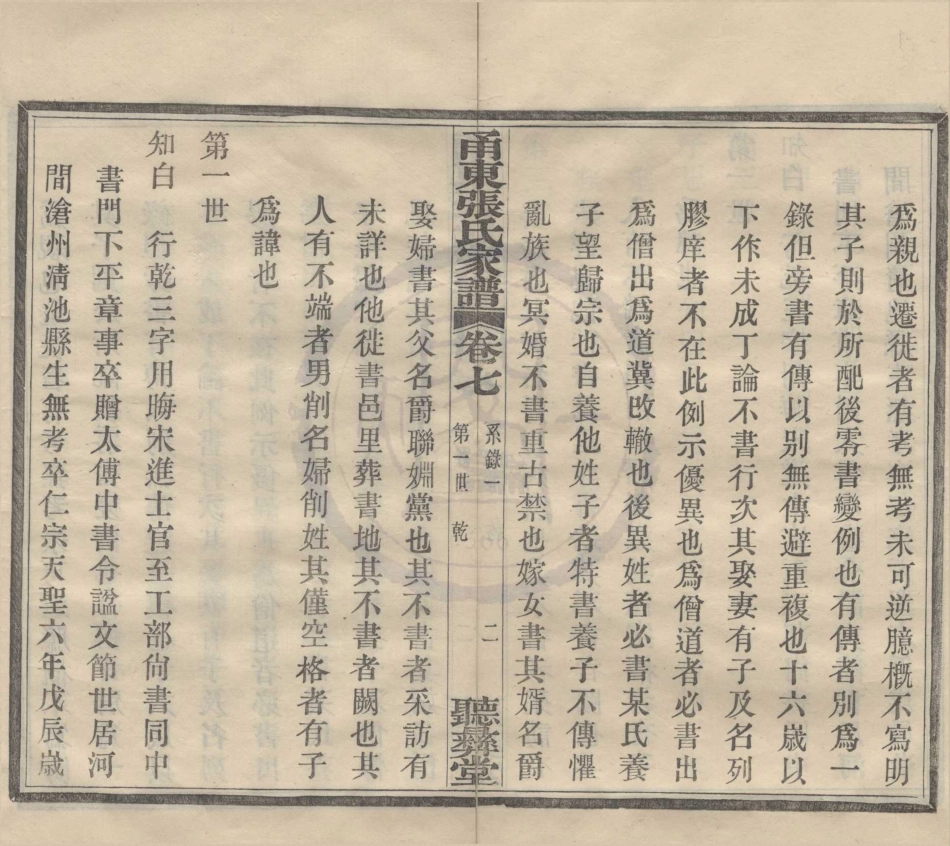 爲親也遷徙者有考無考未可逆臆槪不寫明
其子則於所配後零書變例也有傳者別爲一
錄但旁書有傳以别無傳避重複也十六歲以
下作未成丁論不書行次其娶妻有子及名列
膠庠者不在此例示優異也爲僧道者必書出
爲僧出爲道冀改轍也後異姓者必書某氏養
子望歸宗也自養他姓子者特書養子不傳懼
亂族也冥婚不書重古禁也嫁女書其婿名爵
甬東張氏家譜 卷七 系錄一 第一世 乾 二 聽彝堂
娶婦書其父名爵聯婣黨也其不書者采訪有
未詳也他徙書邑里葬書地其不書者闕也其
人有不端者男削名婦削姓其僅空格者有子
爲諱也
第一世
知白 行乾三字用晦宋進士官至工部尙書同中
書門下平章事卒贈太傅中書令諡文節世居河
間滄州淸池縣生無考卒仁宗天聖六年戊辰歲